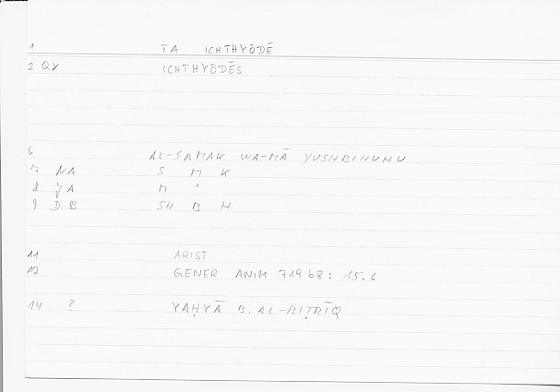 1 TA ICHTHYŌDĒ
2 QX ICHTHYŌDĒS
6 AL-SAMAK WA-MĀ YUSHBIHUHU
7 NA S M K
8 JA M '
9 DB SH B H
11 ARIST
12 GENER ANIM 719 b8: 15.6
14 ? YAḤYĀ B. AL-BIṬRĪQ